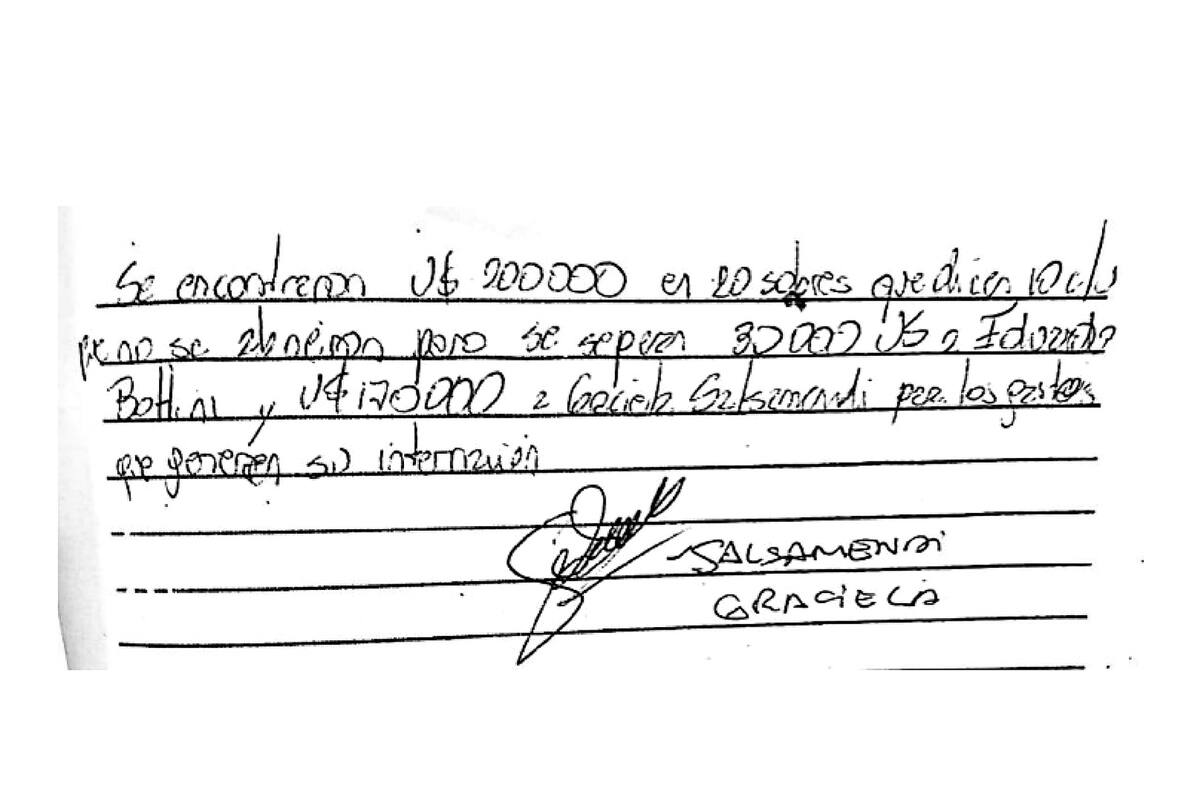 Se encontraron U$ 200000 en 20 sobres que dicen 10 c/u
no se abrieron pero se separan 30000 U$ a Eduardo
Bottini y U$ 170000 a Graciela Salsamendi para los gastos
que generen su internación
SALSAMENDI
GRACIELA